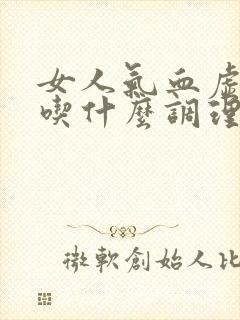 女人氣血虛
喫什麼調理
微軟創始人比